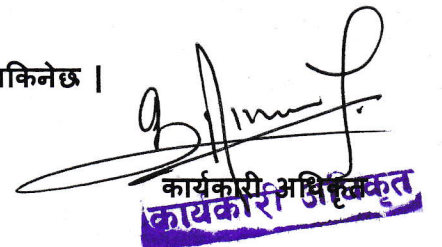 किनेछ |
कार्यकारी अधिकृत
कार्यकारी अधिकृत